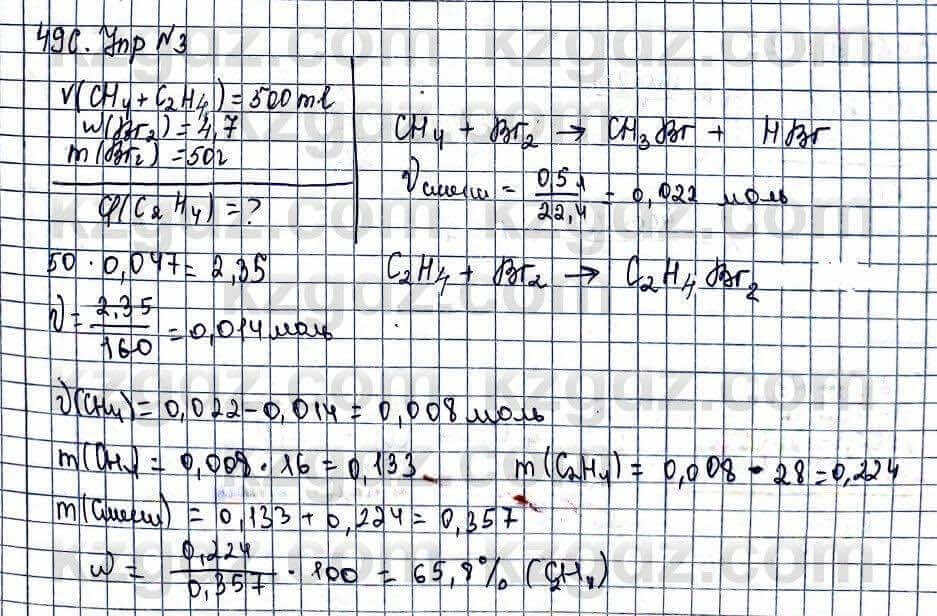 49с. Упр №3
V(CH4 + C2H4) = 500 ml
w(Br2) = 4,7
m(Br2) = 50г
φ(C2H4) = ?
CH4 + Br2 → CH3Br + HBr
νсмеси = 0,5л / 22,4 = 0,022 моль
50 · 0,047 = 2,35
C2H4 + Br2 → C2H4Br2
ν = 2,35 / 160 = 0,014 моль
ν(CH4) = 0,022 - 0,014 = 0,008 моль
m(CH4) = 0,008 · 16 = 0,133
m(C2H4) = 0,008 · 28 = 0,224
m(смеси) = 0,133 + 0,224 = 0,357
w = 0,224 / 0,357 · 100 = 65,8% (C2H4)
kzgdz.com